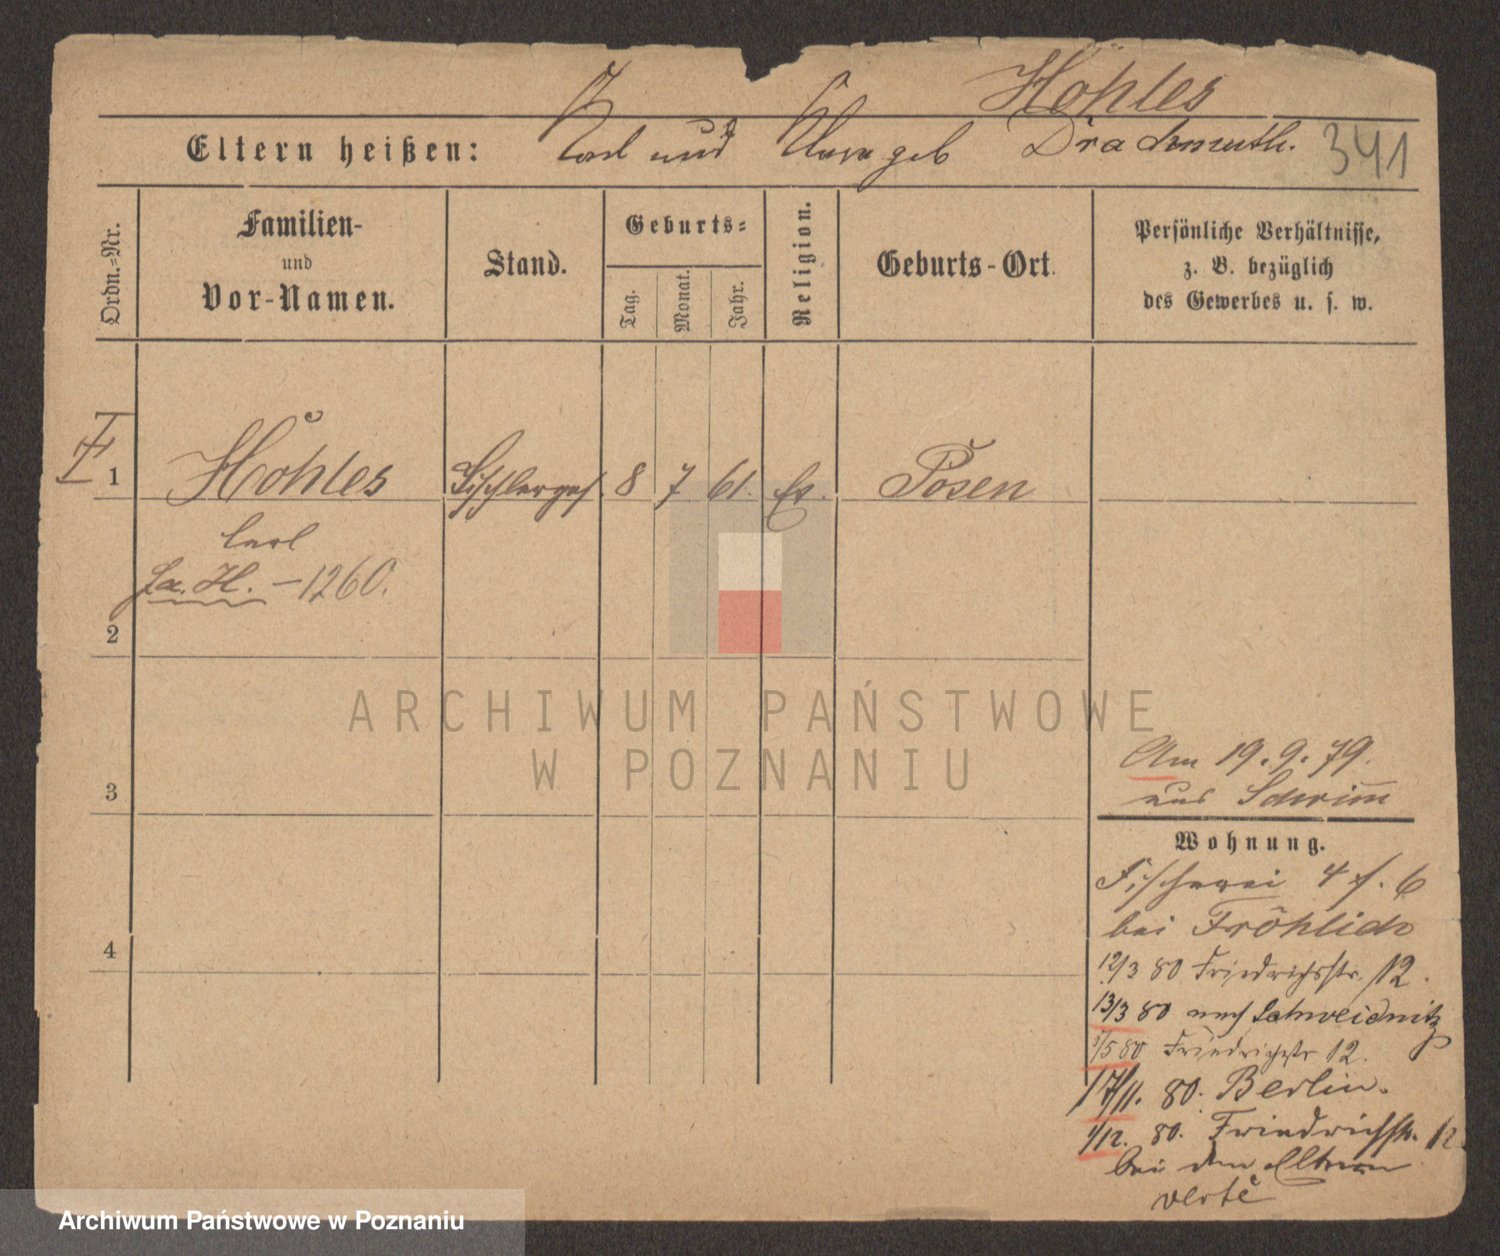 Höhles
Eltern heißen: Carl und Clara geb Drademuth. 341
Ordn.-Nr.
Familien-
und
Vor-Namen.
Stand.
Geburts-
Tag.
Monat.
Jahr.
Religion.
Geburts-Ort.
Persönliche Verhältnisse,
z. B. bezüglich
des Gewerbes u. s. w.
1 Höhles Tischlerges. 8 7 61. Ev. Posen
Carl
H. - 1260.
2
ARCHIWUM PAŃSTWOWE
W POZNANIU
3
Am 19.9.79.
aus Schrimm
Wohnung.
Fischerei 4 f. 6
bei Fröhlich
12/3 80 Friedrichsstr. 12.
13/3 80 nach Schweidnitz
4
/5 80 Friedrichstr 12.
17/11. 80. Berlin.
1/12. 80. Friedrichstr. 12
bei den Eltern
verte
Archiwum Państwowe w Poznaniu